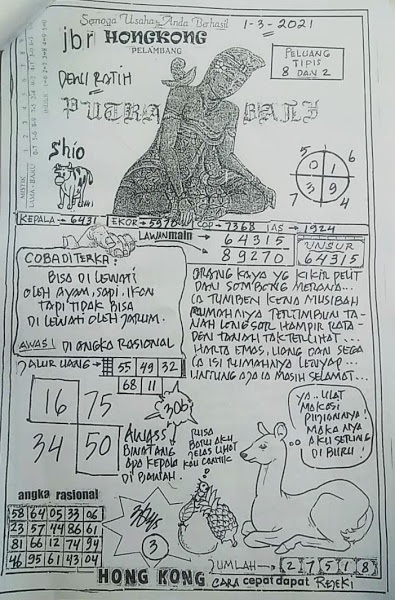 Semoga Usaha Anda Berhasil
1-3-2021
jbr HONGKONG
PELAMBANG
DEWI RATIH
PELUANG
TIPIS
8 DAN 2
PUTRA BALI
Shio
5 6
0 1
3 9
7 4
KEPALA → 6431 EKOR → 5970 COP → 7368 AS → 1924
LAWAN main → 64315
89270
UNSUR
64315
COBA DITERKA:
BISA DI LEWATI
OLEH AYAM, SAPI, IKAN
TAPI TIDAK BISA
DI LEWATI OLEH JARUM.
AWAS! DI ANGKA RASIONAL
ORANG KAYA YG KIKIR PELIT
DAN SOMBONG MERANA...
IA TUMBEN KENA MUSIBAH
RUMAHNYA TERTIMBUN TA-
NAH LONGSOR HAMPIR RATA-
DEN TANAH TAK TERLIHAT...
HARTA EMAS, UANG DAN SEGA
LA ISI RUMAHNYA LENYAP...
UNTUNG AJA IA MASIH SELAMAT...
JALUR UANG → 55 49 32
68 11
16 75
34 50
306
AWASS
BINATANG
APA KEPALA
DI BAWAH.
RUSA
BARU AKU
JELAS LIHAT
KAU CANTIK
YA.. ULAT
MAKASI
PUJIANNYA!
MAKANYA
AKU SERING
DI BURU!
angka rasional
58 64 05 33 06
23 57 44 86 61
81 66 12 74 94
46 95 61 43 04
3
JUMLAH → 2 7 5 1 8
HONG KONG CARA cepat dapat REJEKI